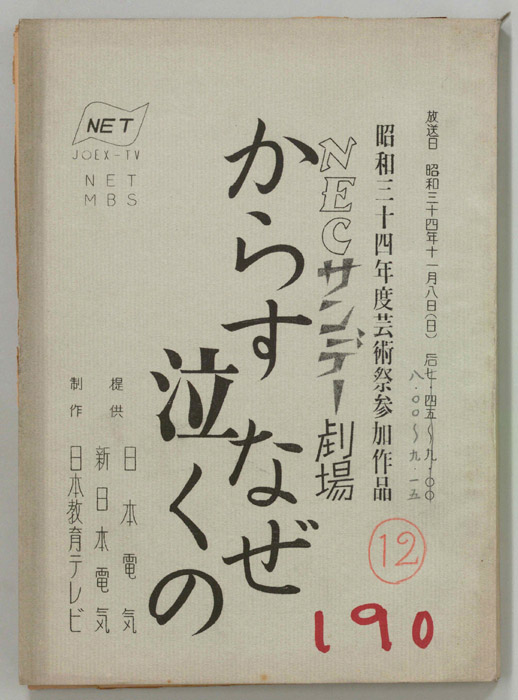 放送日 昭和三十四年十一月八日(日) 后七・四五〜九・〇〇
八・〇〇〜九・一五
昭和三十四年度芸術祭参加作品
NECサンデー劇場
からすなぜ
泣くの
NET
JOEX-TV
NET
MBS
提供 日本電気
新日本電気
制作 日本教育テレビ
12
190